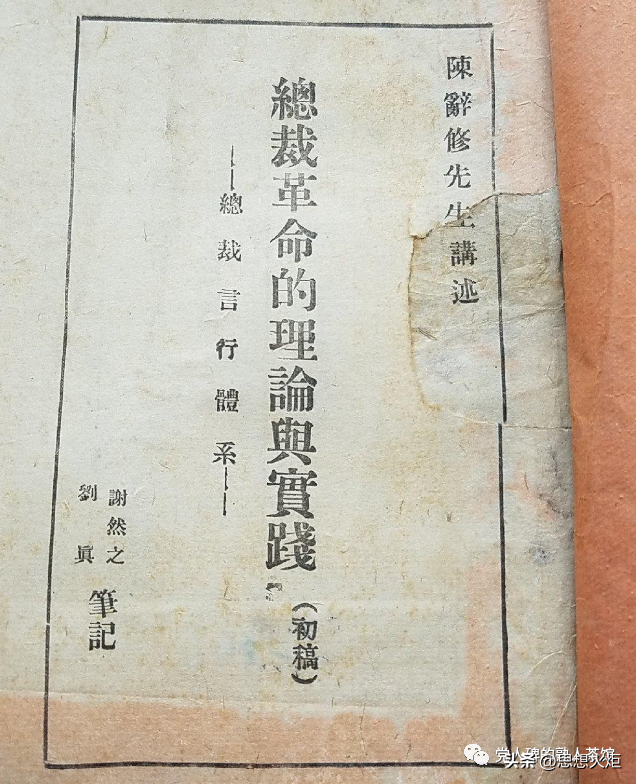 陳辭修先生講述
總裁革命的理論與實踐(初稿)
——總裁言行體系——
謝然之
劉真
筆記
党人碑的熟人茶馆
头条 @思想火炬